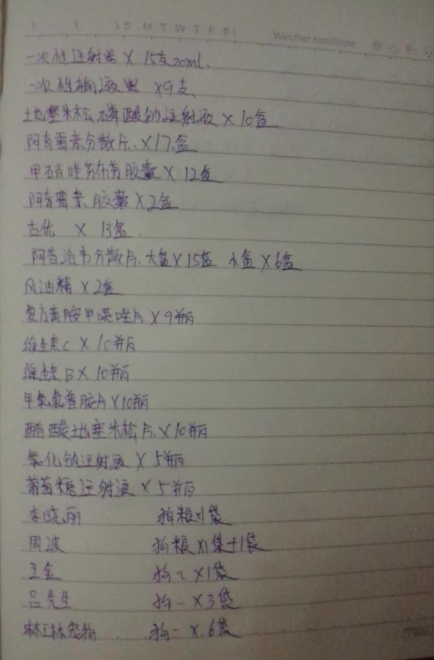 S M T W T F S
Weather conditions
一次性注射器 X 15支20ml.
一次性输液器 X9支
地塞米松磷酸钠注射液 X 10盒
阿奇霉素分散片. X17盒
甲硝唑芬布芬胶囊 X 12盒
阿奇霉素胶囊 X2盒
X 13盒
阿昔洛韦分散片. 大盒X15盒 小盒X6盒
风油精 X 2盒
复方磺胺甲噁唑片 X 9瓶
维生素C X 10瓶
维生素B X 10瓶
片X10瓶
醋酸地塞米松片 X10瓶
氯化钠注射液 X 5瓶
葡萄糖注射液 X 5瓶
李晓丽 狗粮X1袋
周波 狗粮X1袋+1袋
王金 狗 X1袋
吕先生 狗 X3袋
宠物 狗 X.6袋